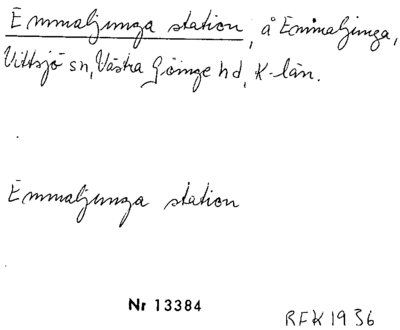 Emmaljunga station, å Emmaljunga,
Vittsjö sn, Västra Göinge hd, K-län.
Emmaljunga station
Nr 13384
RFK 1936